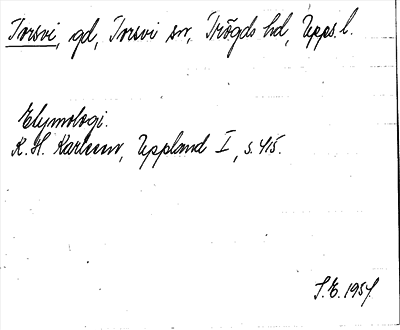 Torsvi, gd, Torsvi sn, Trögds hd, Upps. l.
Etymologi.
K. H. Karlsson, Uppland I, s. 415.
S.E. 1957.